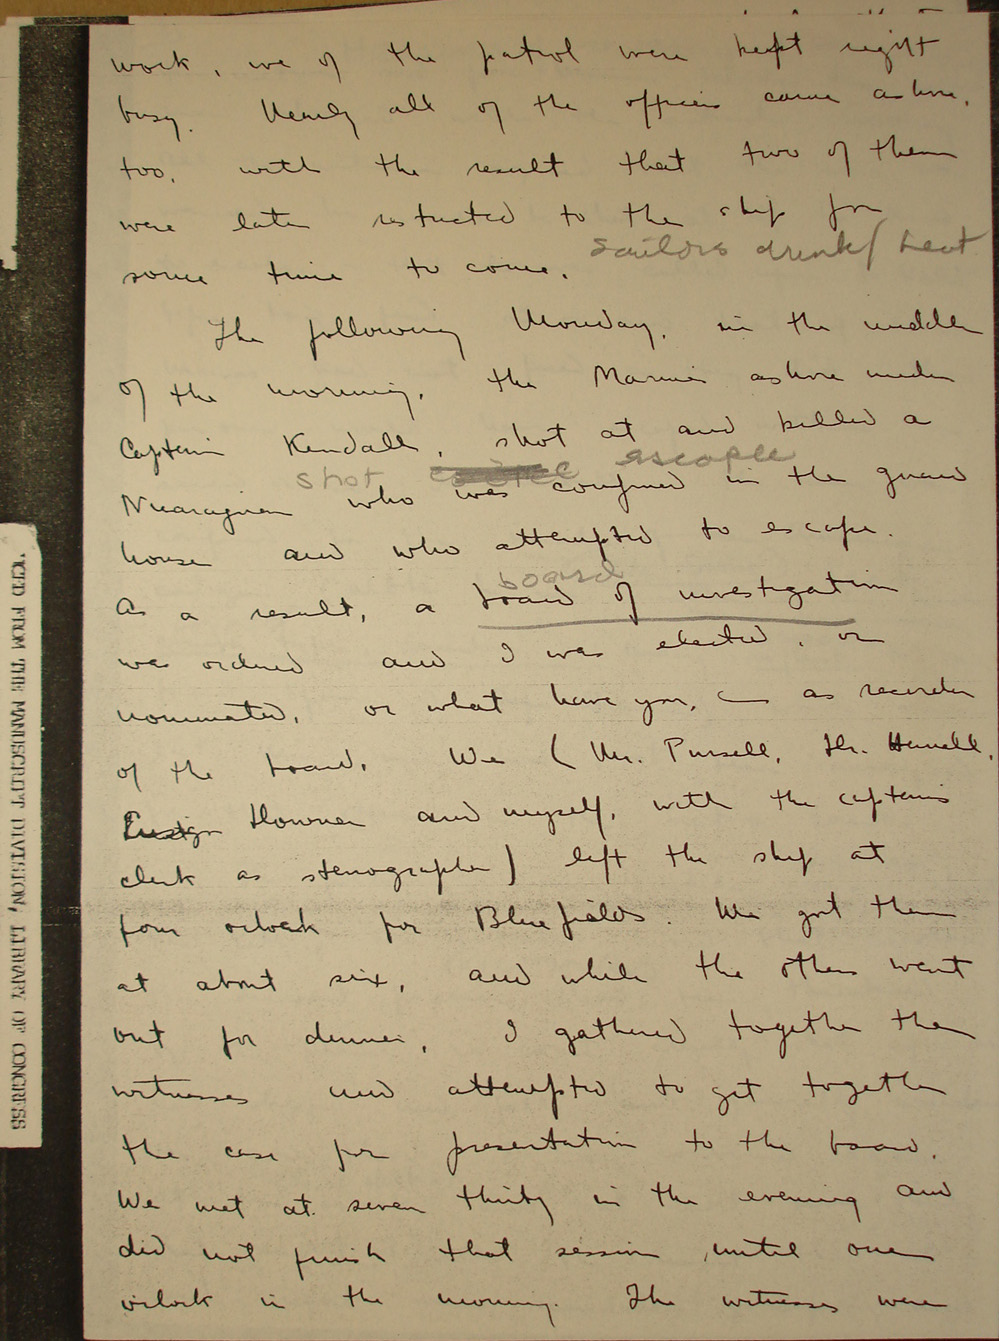 work, we of the patrol were kept right
busy. Nearly all of the officers came ashore,
too, with the result that two of them
were later restricted to the ship for
some time to come.
sailors drunk/heat
The following Monday, in the middle
of the morning, the Marines ashore under
Captain Kendall, shot at and killed a
shot escapee
Nicaraguan who was confined in the guard
house and who attempted to escape.
board
As a result, a board of investigation
was ordered and I was elected, or
nominated, or what have you, — as recorder
of the board. We (Mr. Pursell, Mr. Harrell,
Ensign Downer and myself, with the captains
clerk as stenographer) left the ship at
four oclock for Bluefields. We got there
at about six, and while the others went
out for dinner, I gathered together the
witnesses and attempted to get together
the case for presentation to the board.
We met at seven thirty in the evening and
did not finish that session until one
oclock in the morning. The witnesses were
'CED FROM THE MANUSCRIPT DIVISION, LIBRARY OF CONGRESS